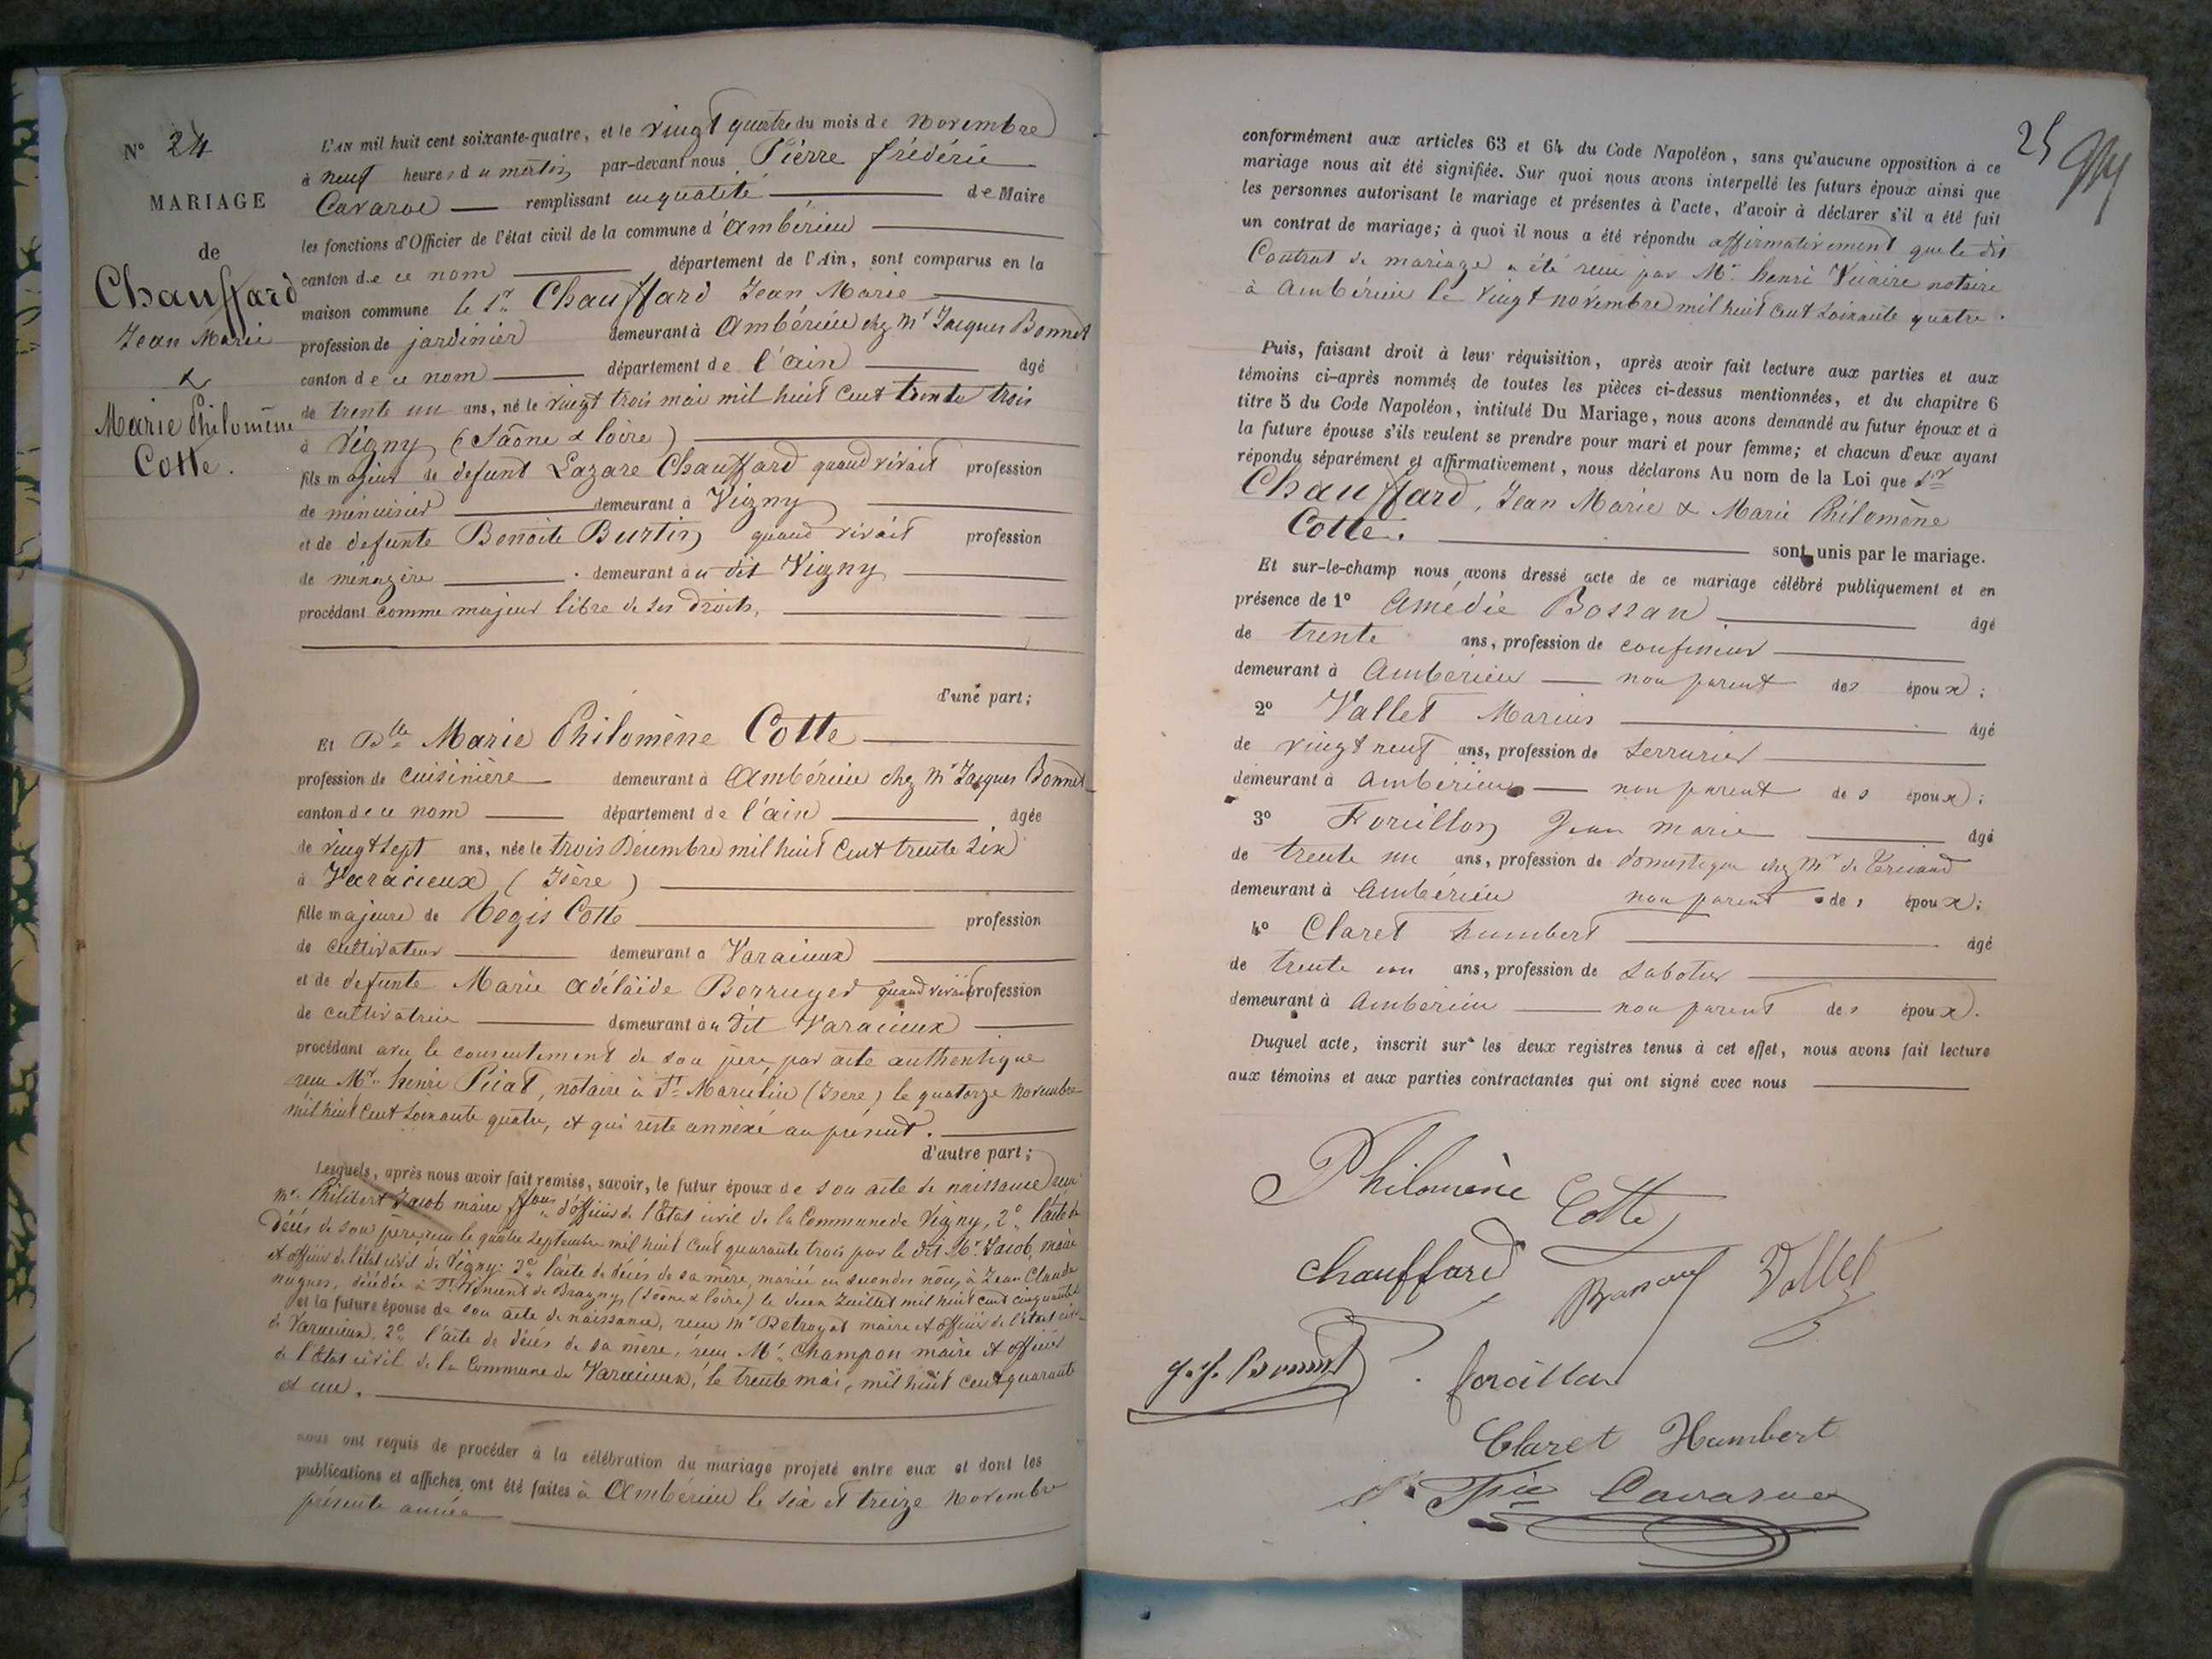 N° 24
MARIAGE
de
Chauffard
Jean Marie
&
Marie Philomène
Cotte.
L'AN mil huit cent soixante-quatre, et le vingt quatre du mois de novembre
à neuf heures du matin, par-devant nous Pierre frédéric
Cavaroc — remplissant en qualité de Maire
les fonctions d'Officier de l'état civil de la commune d'Ambérieu
canton de ce nom département de l'Ain, sont comparus en la
maison commune le Sr Chauffard Jean Marie
profession de jardinier demeurant à Ambérieu chez Mr Jacques Bonnet
canton de ce nom département de l'ain âgé
de trente un ans, né le vingt trois mai mil huit cent trente trois
à Vigny (Saône & loire)
fils majeur de défunt Lazare Chauffard quand vivait profession
de menuisier demeurant à Vigny
et de defunte Benoite Burtin quand vivait profession
de ménagère demeurant au dit Vigny
procédant comme majeur libre de ses droits,
d'une part;
Et Dlle Marie Philomène Cotte
profession de cuisinière demeurant à Ambérieu chez Mr Jacques Bonnet
canton de ce nom département de l'ain âgée
de vingt sept ans, née le trois Décembre mil huit cent trente six
à Varacieux (Isère)
fille majeure de Régis Cotte profession
de cultivateur demeurant à Varacieux
et de defunte Marie Adélaïde Berruyer quand vivait profession
de cultivatrice demeurant au dit Varacieux
procédant avec le consentement de son père, par acte authentique
reçu Mr henri Picat, notaire à St Marcelin (Isère) le quatorze novembre
mil huit cent soixante quatre, et qui reste annexé au présent.
d'autre part;
Lesquels, après nous avoir fait remise, savoir, le futur époux de son acte de naissance reçu
Mr Philibert Jacob maire d'officier de l'Etat civil de la Commune de Vigny, 2° l'acte de
décès de son père, reçu le quatre septembre mil huit cent quarante trois par le dit Mr Jacob, maire
et officier de l'état civil de Vigny: 3° l'acte de décès de sa mère, mariée en secondes nôces à Jean Claude
nugues, décédée à St Vincent de Bragny, (Saone & loire) le deux Juillet mil huit cent cinquante
et la future épouse de son acte de naissance, reçu Mr Detroyat maire et officier de l'état civil
de Varacieux, 2° l'acte de décès de sa mère, reçu Mr Champon maire et officier
de l'Etat civil de la Commune de Varacieux, le trente mai, mil huit cent quarante
et un.
nous ont requis de procéder à la célébration du mariage projeté entre eux et dont les
publications et affiches ont été faites à Ambérieu le six et treize novembre
présente année
25
conformément aux articles 63 et 64 du Code Napoléon, sans qu'aucune opposition à ce
mariage nous ait été signifiée. Sur quoi nous avons interpellé les futurs époux ainsi que
les personnes autorisant le mariage et présentes à l'acte, d'avoir à déclarer s'il a été fait
un contrat de mariage; à quoi il nous a été répondu affirmativement que le dit
Contrat de mariage a été reçu par Mr henri Vicaire notaire
à Ambérieu le vingt novembre mil huit cent soixante quatre.
Puis, faisant droit à leur réquisition, après avoir fait lecture aux parties et aux
témoins ci-après nommés de toutes les pièces ci-dessus mentionnées, et du chapitre 6
titre 5 du Code Napoléon, intitulé Du Mariage, nous avons demandé au futur époux et à
la future épouse s'ils veulent se prendre pour mari et pour femme; et chacun d'eux ayant
répondu séparément et affirmativement, nous déclarons Au nom de la Loi que Sr
Chauffard, Jean Marie & Marie Philomène
Cotte. sont unis par le mariage.
Et sur-le-champ nous avons dressé acte de ce mariage célébré publiquement et en
présence de 1° Amédée Bossan âgé
de trente ans, profession de confiseur
demeurant à Ambérieu — non parent des époux;
2° Vallet Marius âgé
de vingt neuf ans, profession de serrurier
demeurant à Ambérieu — non parent des époux;
3° Foraillon Jean marie âgé
de trente un ans, profession de domestique chez Mr de
demeurant à Ambérieu non parent des époux;
4° Claret humbert âgé
de trente un ans, profession de sabotier
demeurant à Ambérieu — non parent des époux.
Duquel acte, inscrit sur les deux registres tenus à cet effet, nous avons fait lecture
aux témoins et aux parties contractantes qui ont signé avec nous
Philomène Cotte
Chauffard Bossan Vallet
J. J. Bonnet foraillon
Claret Humbert
Cavaroc